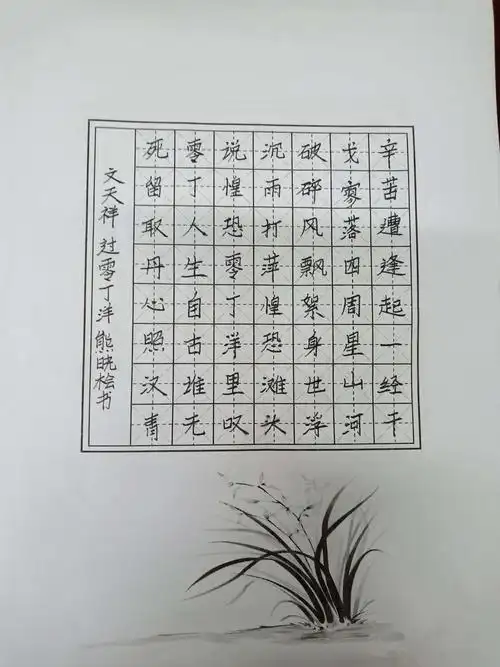 辛苦遭逢起一经干
戈寥落四周星山河
破碎风飘絮身世浮
沉雨打萍惶恐滩头
说惶恐零丁洋里叹
零丁人生自古谁无
死留取丹心照汉青
文天祥 过零丁洋 熊晓桧书